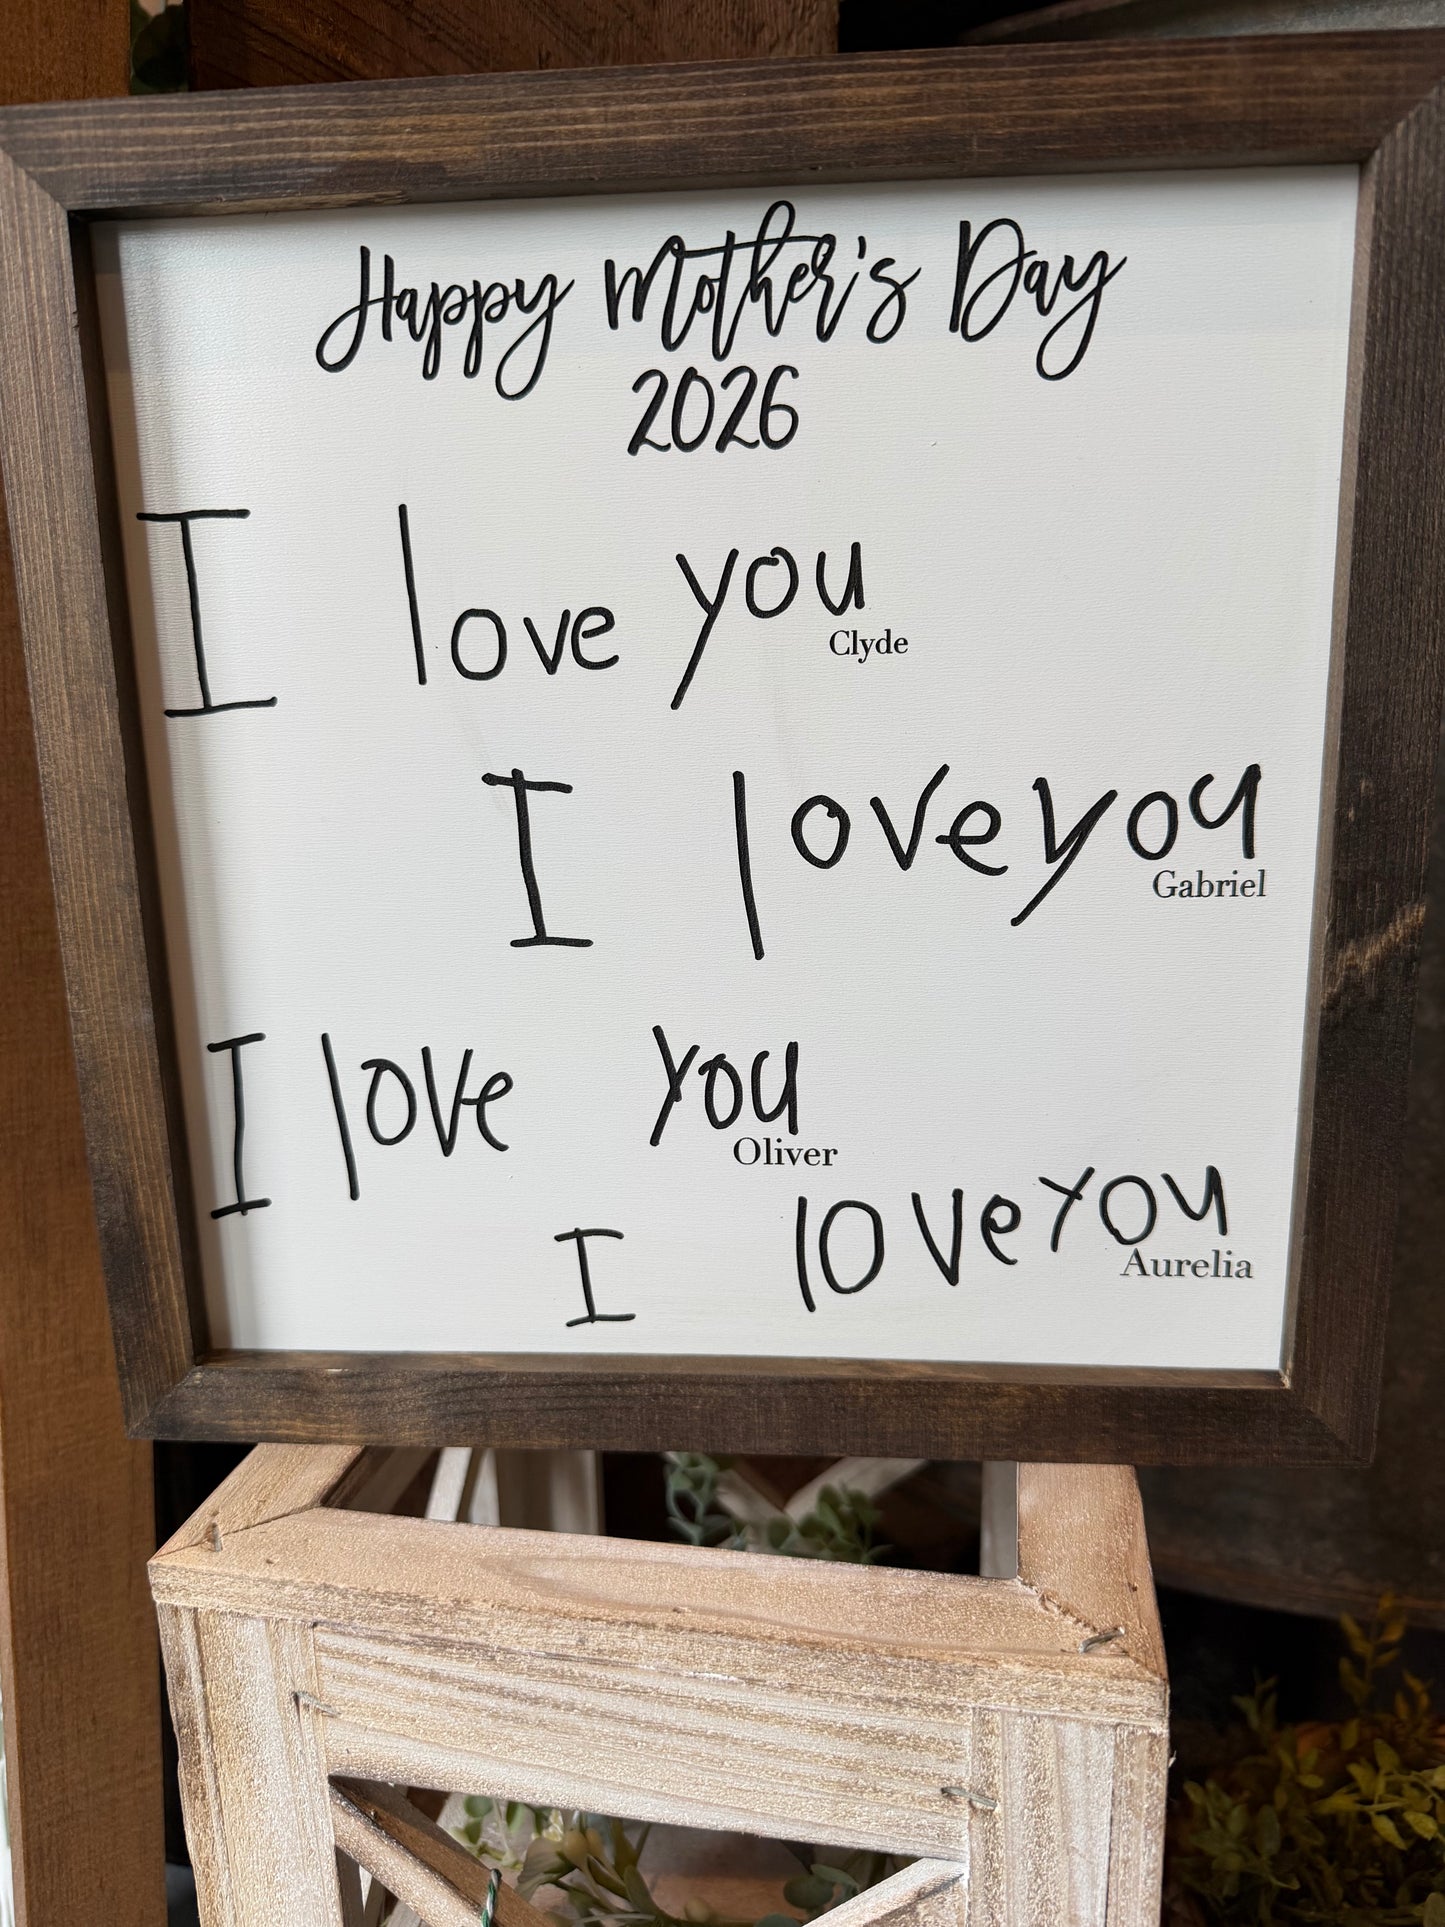 Happy Mother's Day
2026
I love you
Clyde
I love you
Gabriel
I love you
Oliver
I love you
Aurelia